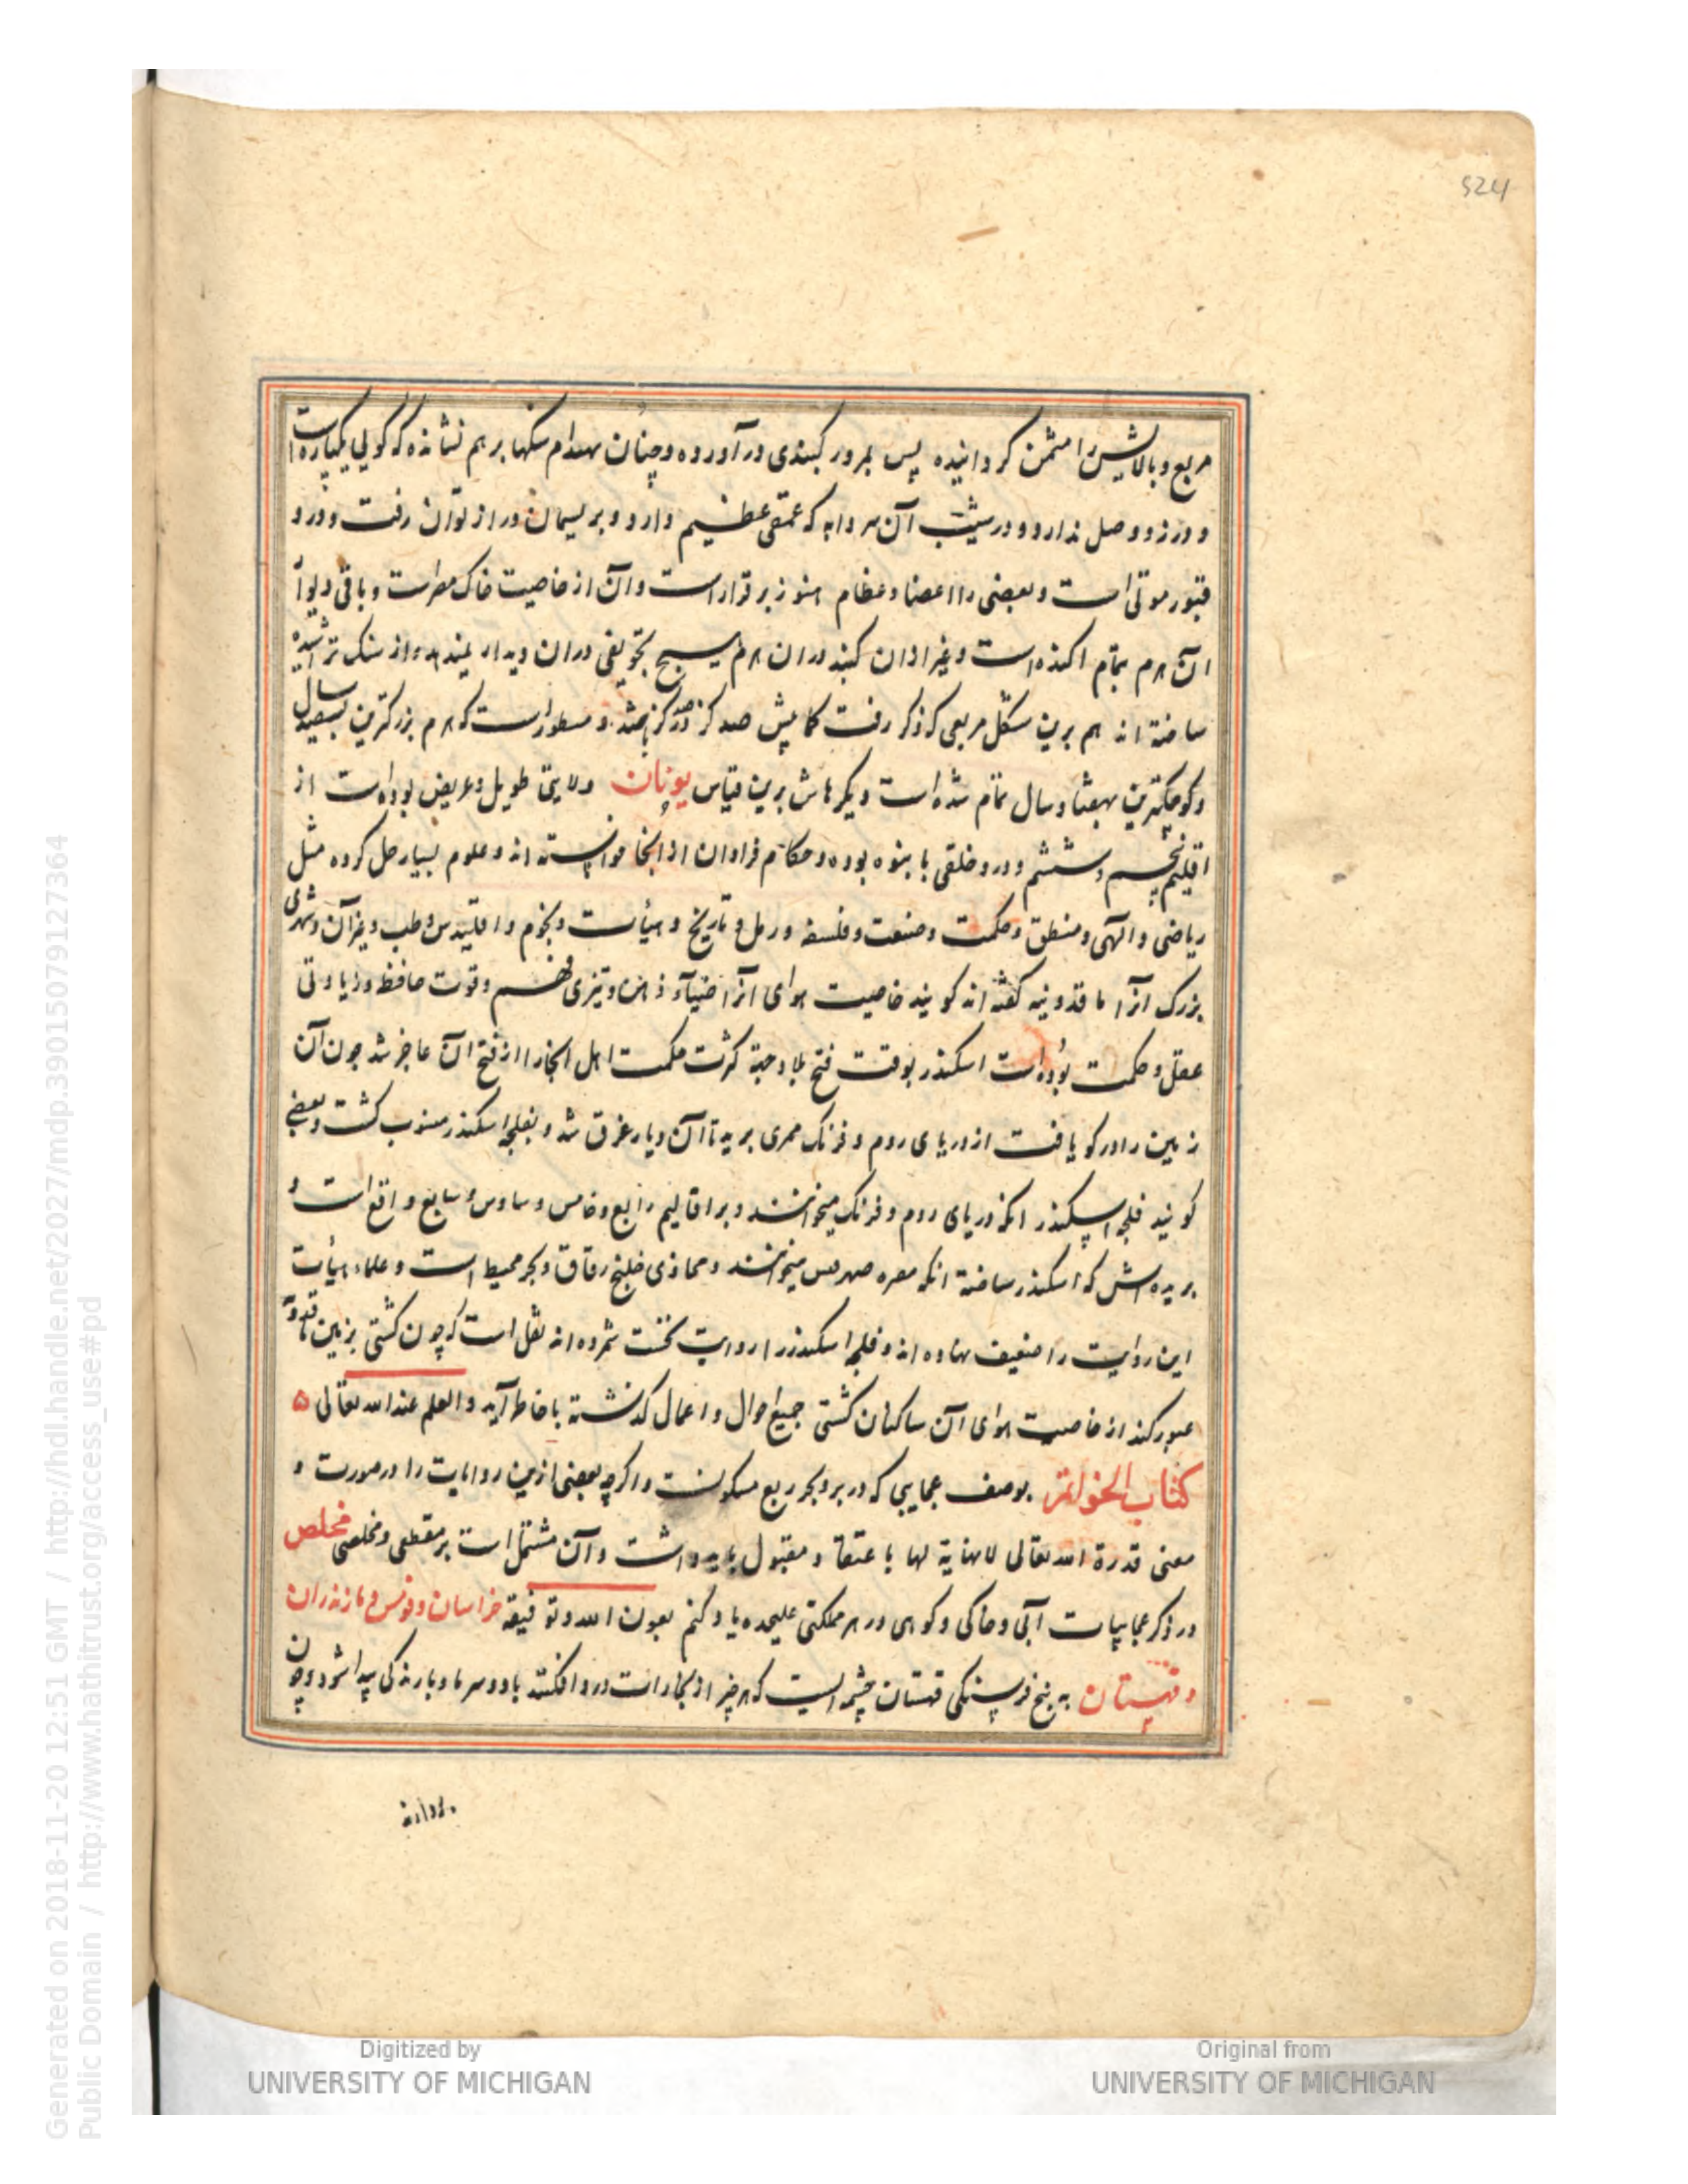 524
مربع و بالایش را مثمن کردانیده پس بمرور کنبدی درآورده و چنان بهندام سنکها بر هم نشانده که کویی یکپاره است
و درز و وصل ندارد و در شیب آن سردابه که عمقی عظیم دارد و بریسمان دراز توان رفت و درو
قبور موتی است و بعضی را اعضا و عظام هنوز برقرار است و آن از خاصیت خاک مطر است و باقی دیوار
آن هرم بتمام اکنده است و غیر ازان کنبد دران هرم هیچ تجویفی دران دیدار نیند از سنک تراشیده
ساخته اند هم برین شکل مربعی که ذکر رفت کمابیش صد کز در کز باشد و مسطور است که هرم بزرکترین بسیصد سال
و کوچکترین بهفتاد سال تمام شده است دیکرهاش برین قیاس یونان ولایتی طویل و عریض بوده است از
اقلیم پنجم و ششم و درو خلقی با بنوه بوده و حکام فراوان از انجا خواسته اند و علوم بسیار حل کرده مثل
ریاضی و الهی و منطق و حکمت و صنعت و فلسفه و رمل و تاریخ و هیأت و نجوم و اقلیدس و طب و غیر آن و شهری
بزرک انرا ماقدونیه کفته اند کویند خاصیت هوای انرا ضیآء ذهن و تیزی فهم و قوت حافظه و زیادتی
عقل و حکمت بوده است اسکندر بوقت فتح بلاد جهة کثرت حکمت اهل انجا را از فتح آن عاجز شد چون آن
زمین را در کو یافت از دریای روم و فرنک ممری برید تا آن دیار غرق شد و بفلجه اسکندر منسوب کشت و بعضی
کویند فلجه اسکندر انکه دریای روم و فرنک میخوانند و بر اقالیم رابع و خامس و سادس و سابع واقع است و
بریده اش که اسکندر ساخته انکه معره میخوانند و محاذی خلیج زقاق و بحر محیط است و علماء هیأت
این روایت را ضعیف نهاده اند و فلجه اسکندر را روایت نخست شمرده اند نقل است که چون کشتی بزمین قدو
عبور کند از خاصیت هوای آن ساکنان کشتی جمیع احوال و اعمال کذشته با خاطر آید و العلم عند الله تعالی ۵
کتاب الخواتم بوصف عجایبی که در بر و بحر ربع مسکونست و اکرچه بعضی ازین روایات را در صورت و
معنی قدرة الله تعالی لانهایة لها با عتقا و مقبول باید داشت و آن مشتمل است بر مقطعی و مخلصی مخلص
در ذکر عجایبات آبی و خاکی و کوهی در هر مملکتی علیحده یاد کنم بعون الله و توفیقه خراسان و قومس و مازندران
و قهستان به پنج فرسنکی قهستان چشمه ایست که هر چیز از بخاراست درو افکند باد و سرما و بارندکی پیدا شود و چون